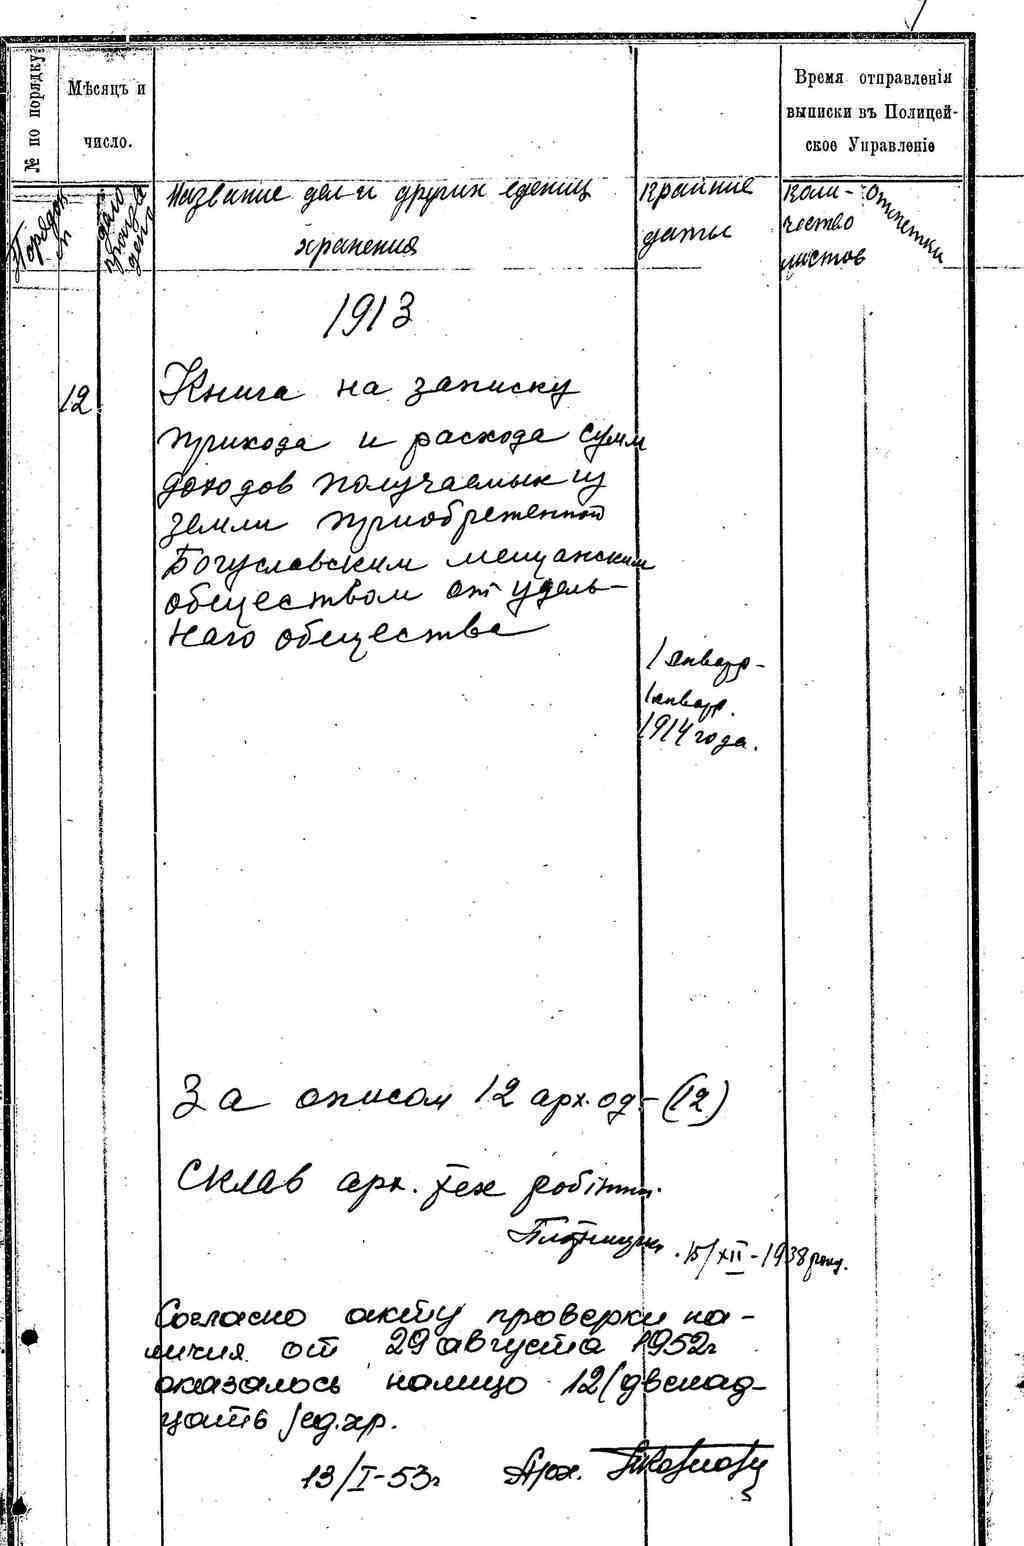 № по порядку
Мѣсяцъ и
число.
Время отправленія
выписки въ Полицей-
ское Управленіе
Порядков
Название дел и других едениц
хранения
крайние
даты
Коли-
чество
листов
Отметки
1913
12
Книга на записку
прихода и расхода сумм
доходов получаемых из
земли приобретенной
Богуславским мещанским
обществом от удель-
наго общества
1 январ-
1 январ.
1914 года.
За описом 12 арх. од - (12)
Склав арх. тех робітни.
15/XII - 1938 року.
Согласно акту проверки на-
личия от 29 августа 1952г
оказалось налицо 12 (двенад-
цать) ед. хр.
13/I-53г Арх.